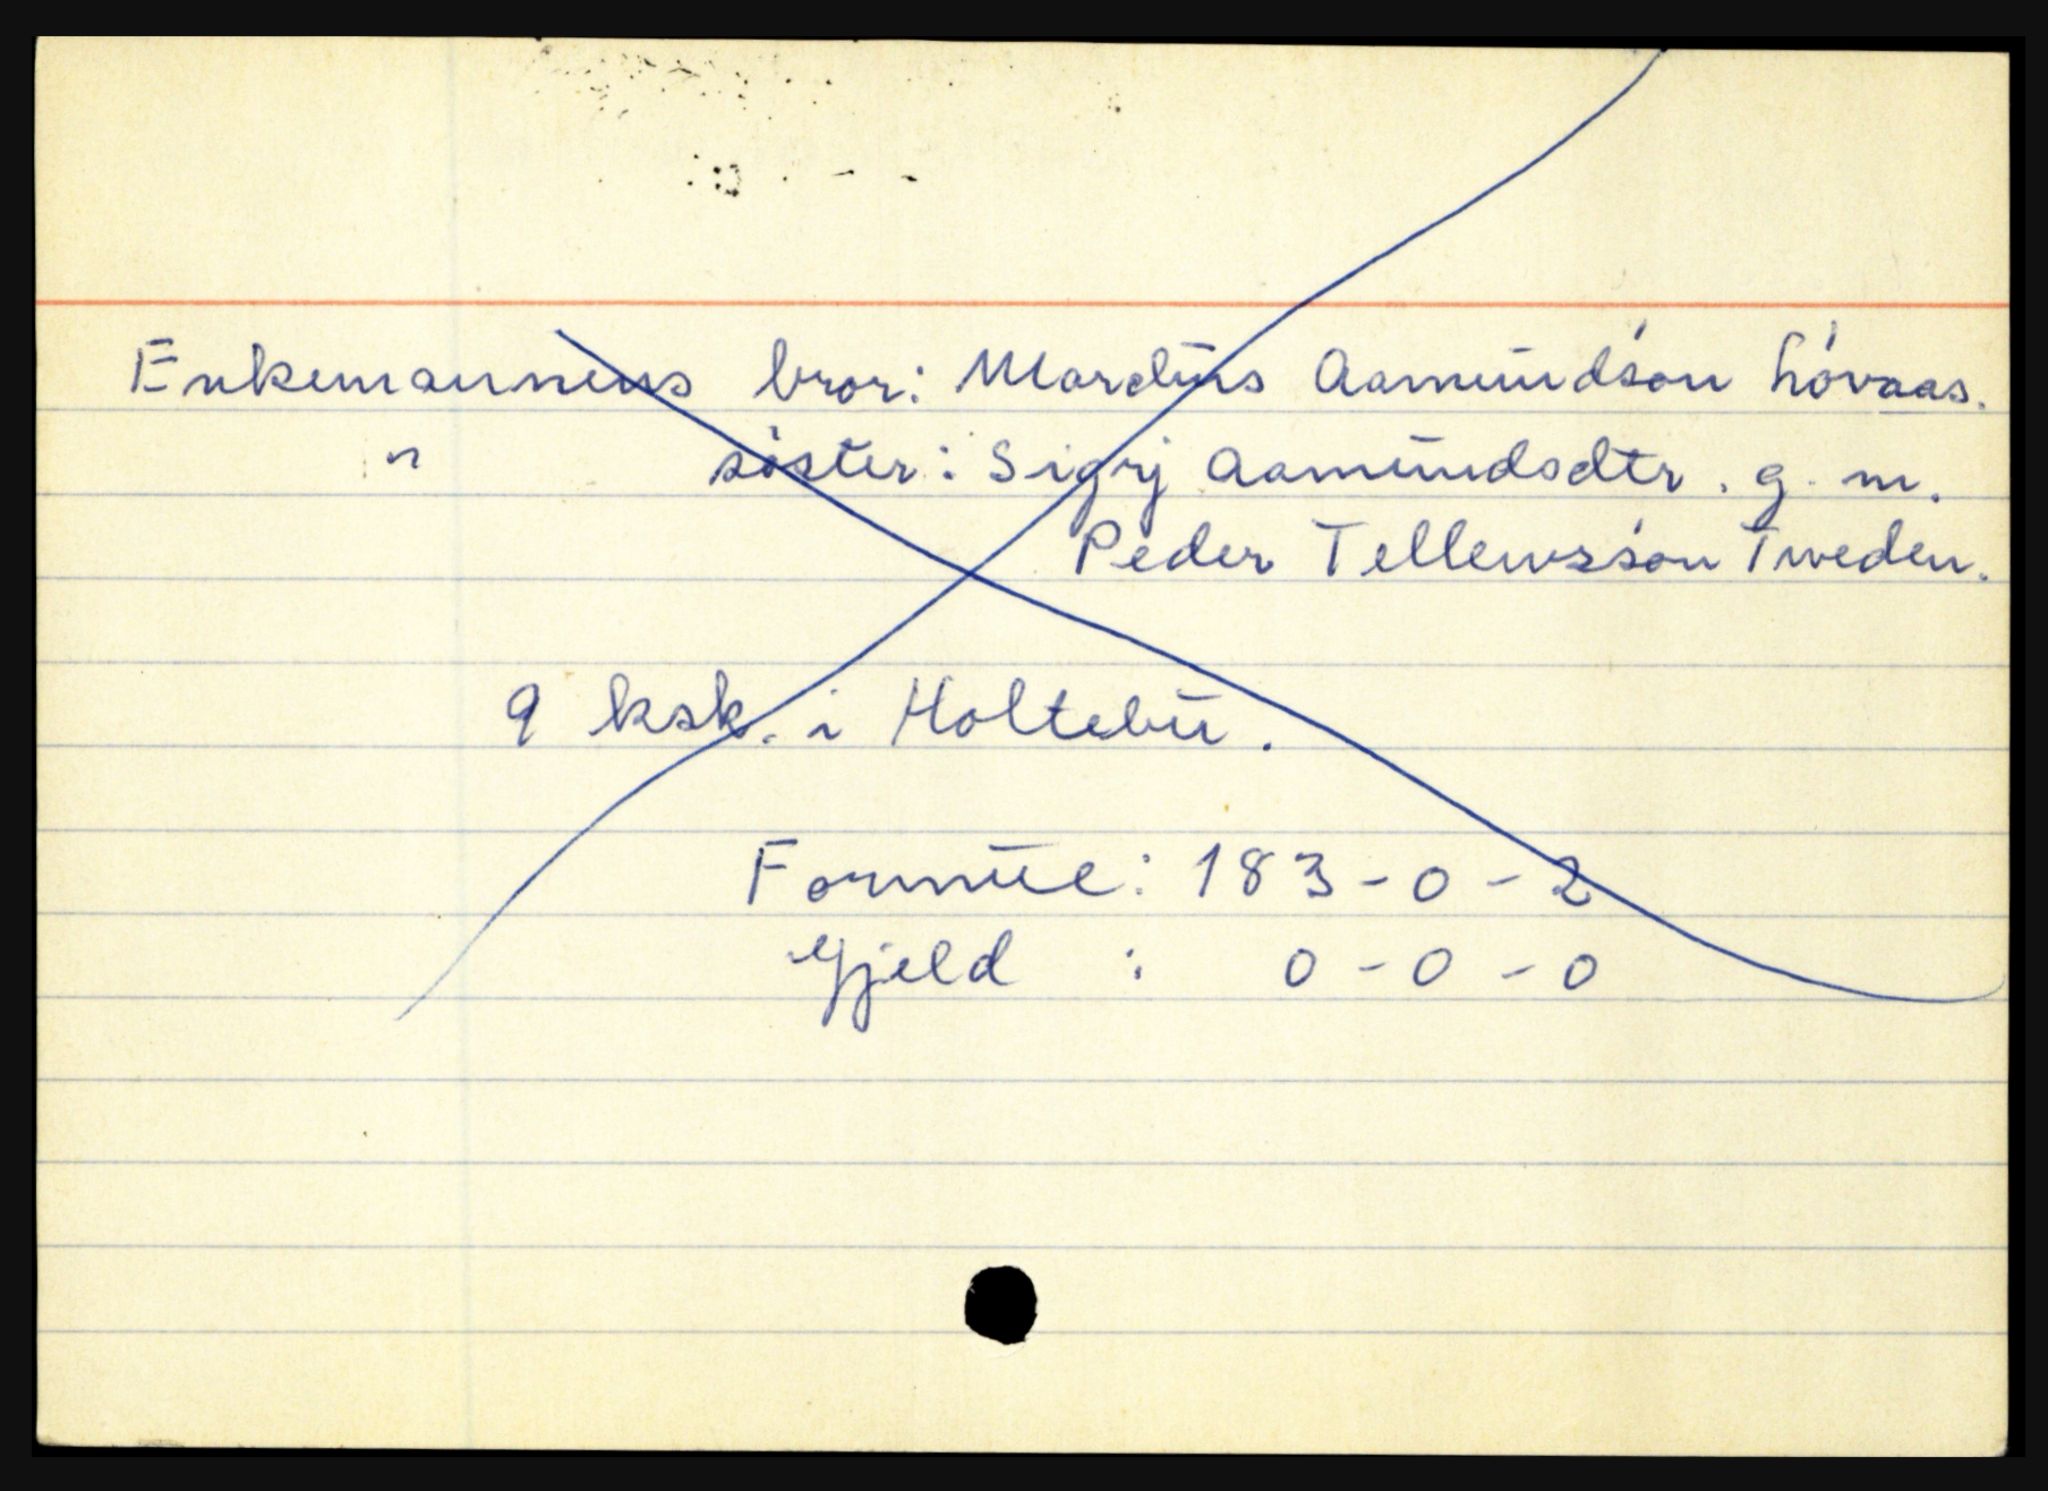 Enkemannens bror: Mardius Aamundsøn Løvaas.
" søster: Sigrj Aamundsdtr. g. m.
Peder Tellewssøn Tweden.
9 ksk. i Holtebu.
Formue: 183-0-2
Gjeld : 0-0-0